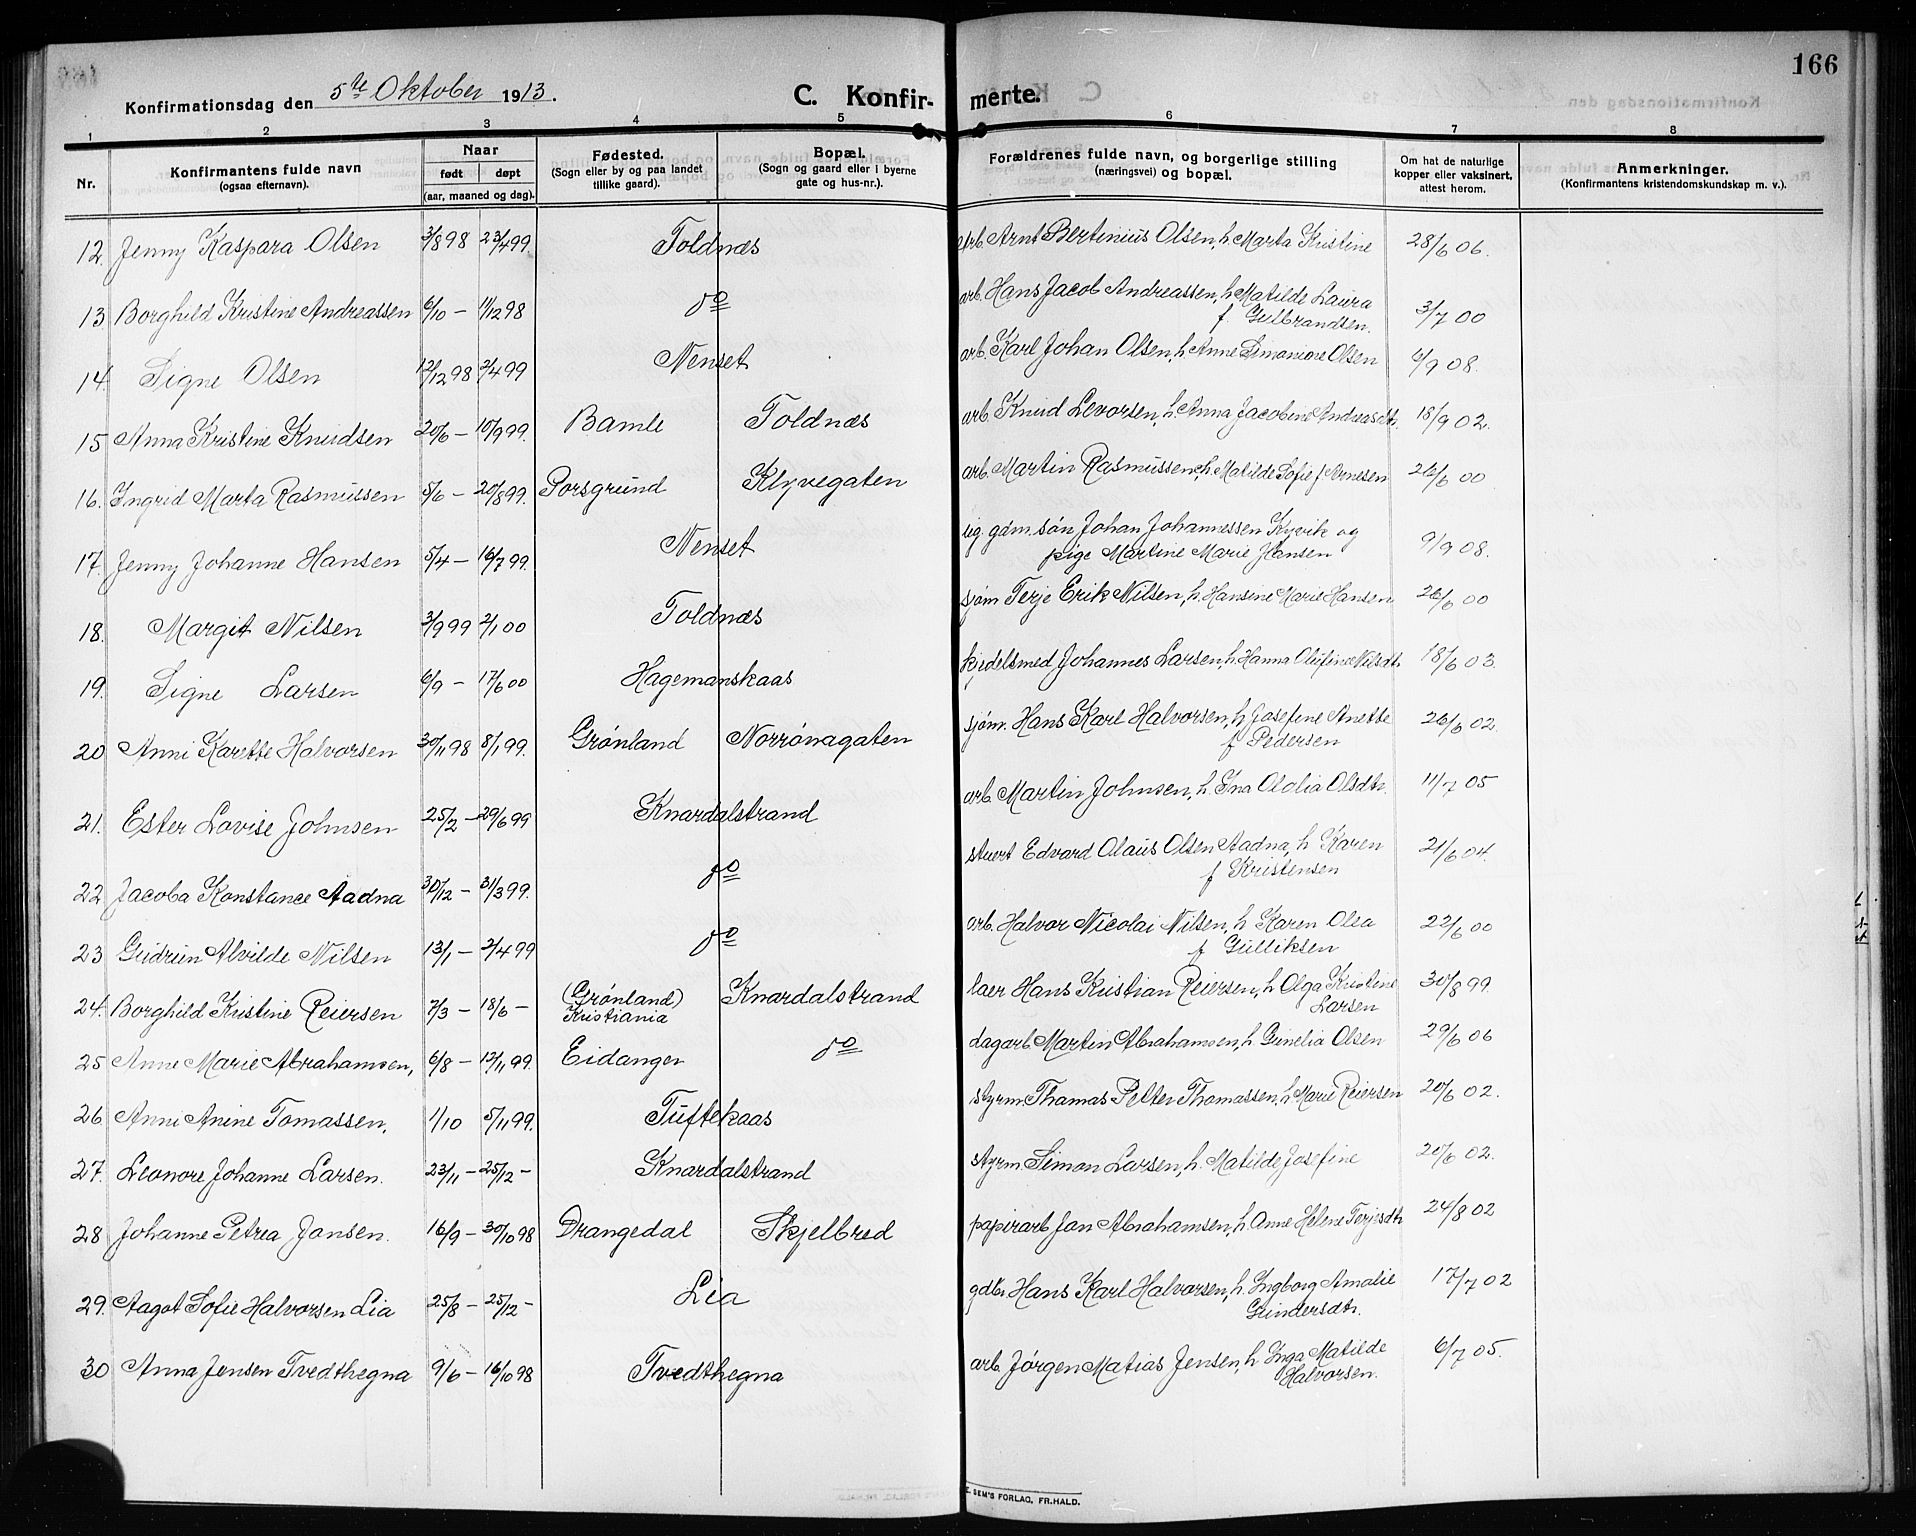 166
Konfirmationsdag den 5te Oktober 1913. C. Konfirmerte.
1 2 3 4 5 6 7 8
Nr. Konfirmantens fulde navn (ogsaa efternavn). Naar født døpt (aar, maaned og dag). Fødested. (Sogn eller by og paa landet tillike gaard). Bopæl. (Sogn og gaard eller i byerne gate og hus-nr.). Forældrenes fulde navn, og borgerlige stilling (næringsvei) og bopæl. Om hat de naturlige kopper eller vaksinert, attest herom. Anmerkninger. (Konfirmantens kristendomskundskap m. v.).
12. Jenny Kaspara Olsen 3/8 98 23/4 99. Toldnæs arb. Arnt Bertinius Olsen, h. Marta Kristine 28/6 06.
13 Borghild Kristine Andreassen 6/10 – 11/12 98 do arb. Hans Jacob Andreassen, h Matilde Laura f. Gulbrandsen. 3/7 00
14. Signe Olsen 12/12 98 2/4 99 Nenset arb. Karl Johan Olsen, h Anne Simonione Olsen 4/9 08.
15 Anna Kristine Knudsen 20/6 – 10/9 99. Bamle Toldnæs arb. Knud Levorsen, h Anna Jacobine Andreasdtr. 18/9 02.
16. Ingrid Marta Rasmussen 5/6 – 20/8 99. Porsgrund Klyvegaten arb. Martin Rasmussen, h. Matilde Sofie f Arnesen 26/6 00
17. Jenny Johanne Hansen 5/4 – 16/7 99. Nenset ug. gdm.søn Johan Johannessen Kyvik og pige Martine Marie Hansen 9/9 08.
18. Margit Nilsen 3/9 99 2/1 00 Toldnæs sjøm Terje Erik Nilsen, h. Hansine Marie Hansen 26/6 00
19. Signe Larsen 6/9 – 17/6 00 Hagemanskaas kjedelsmed Johannes Larsen, h. Hanna Olufine Nilsdtr. 18/6 03.
20 Anni Karette Halvorsen 30/11 98 8/1 99. Grønland Norrønagaten sjøm. Hans Karl Halvorsen, h Josefine Anette f Pedersen 26/6 02.
21. Ester Lovise Johnsen 25/2 – 29/6 99 Knardalstrand arb. Martin Johnsen, h. Ina Ololia Olsdtr. 11/7 05
22 Jacoba Konstance Aadna 30/12 – 31/3 99. do stuert Edvard Olaus Olsen Aadna, h Karen f Kristensen 21/6 04.
23 Gudrun Alvilde Nilsen 13/1 – 2/4 99 do arb. Halvor Nicolai Nilsen, h Karen Olea f Gulliksen 22/6 00
24. Borghild Kristine Reiersen 7/3 – 18/6 – (Grønland) Kristiania Knardalstrand laer Hans Kristian Reiersen, h Olga Kristine Larsen 30/8 99
25 Anne Marie Abrahamsen, 6/8 – 12/11 99. Eidanger do dagarb. Martin Abrahamsen, h Gunelia Olsen 29/6 06
26 Anni Anine Tomassen. 1/10 5/11 99. Tuftekaas styrm. Thomas Petter Thomassen, h Marie Reiersen 20/6 02.
27. Leonore Johanne Larsen. 23/11 – 25/12 – Knardalstrand styrm. Simon Larsen, h. Matilde Josefine 20/6 02.
28 Johanne Petrea Jansen. 16/9 – 30/10 98 Drangedal Skjelbred papirarb. Jan Abrahamsen, h Anne Helene Terjesdtr 24/8 02
29. Aagot Sofie Halvorsen Lia 25/8 – 25/12 – Lia gdbr. Hans Karl Halvorsen, h. Ingborg Amalie Gundersdtr. 17/7 02
30 Anna Jensen Tvedthegna 9/6 – 16/10 98 Tvedthegna arb. Jørgen Matias Jensen, h Inga Matilde Halvorsen. 6/7 05.
E. SEM'S FORLAG, FR.HALD.